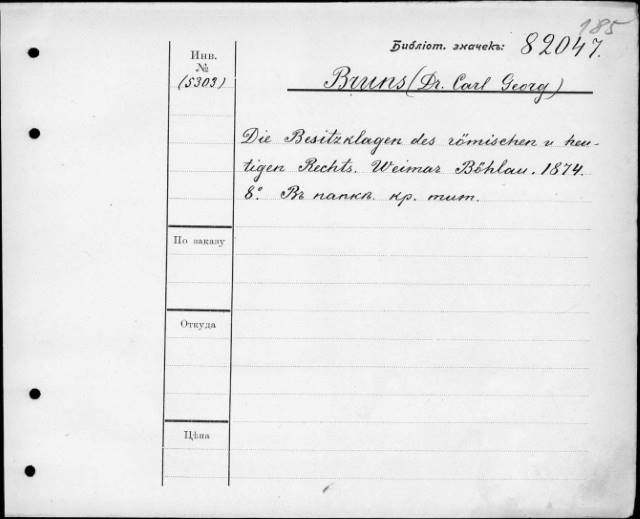 185
Библіот. значекъ: 82047.
Инв.
№
(5303)
Bruns (Dr. Carl Georg)
Die Besitzklagen des römischen u heu-
tigen Rechts. Weimar Böhlau. 1874.
8º. Въ папкѣ. кр. тит.
По заказу
Откуда
Цѣна